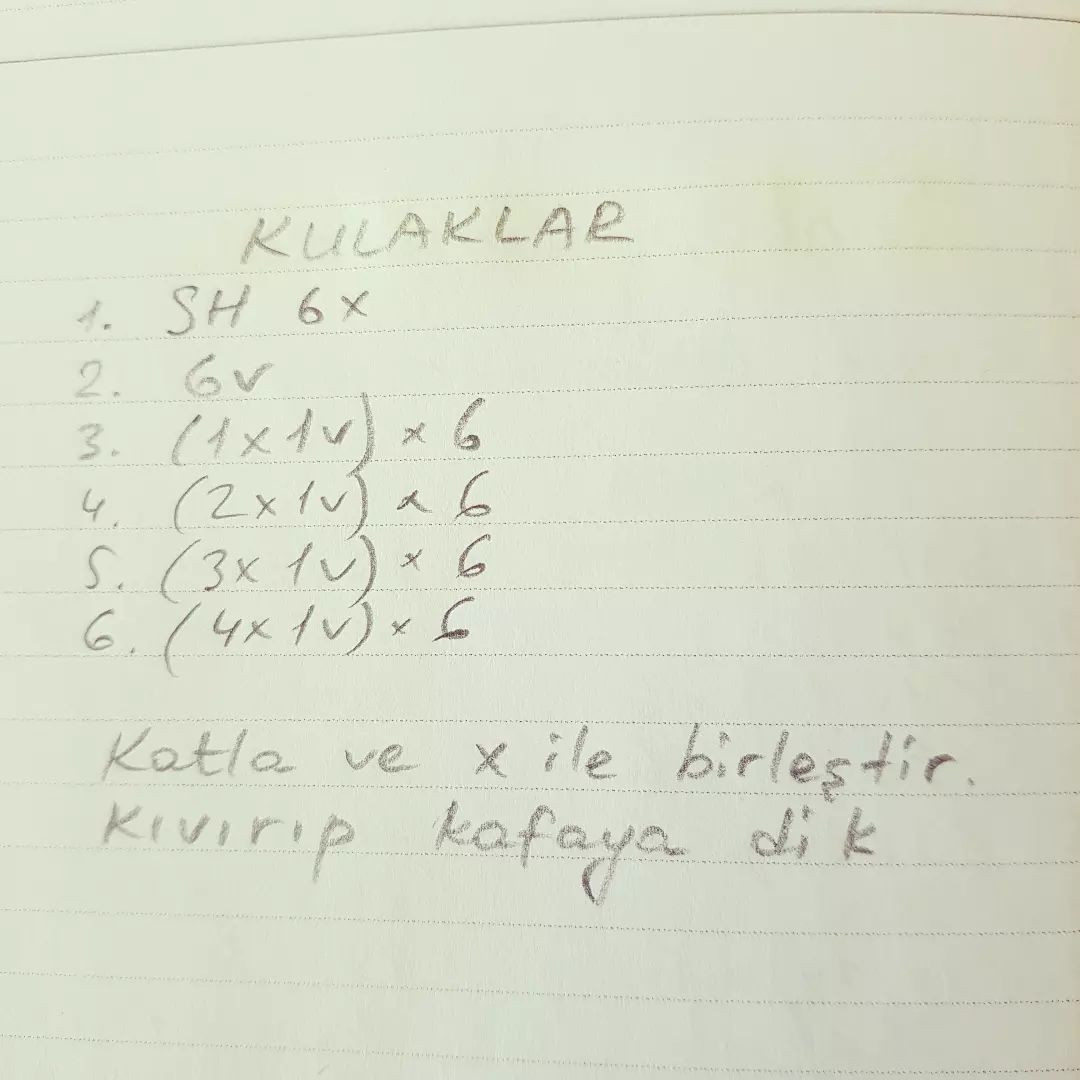 KULAKLAR
1. SH 6x
2. 6v
3. (1x1v) x 6
4. (2x1v) x 6
5. (3x1v) x 6
6. (4x1v) x 6
Katla ve x ile birleştir.
Kıvırıp kafaya dik